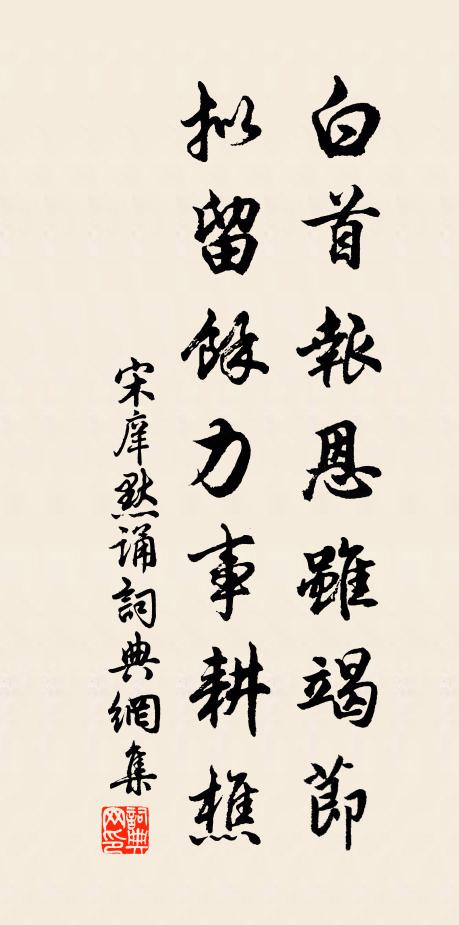 白首報恩雖竭節
拟留餘力事耕樵
宋庠默诵詞典網集
詞典网印